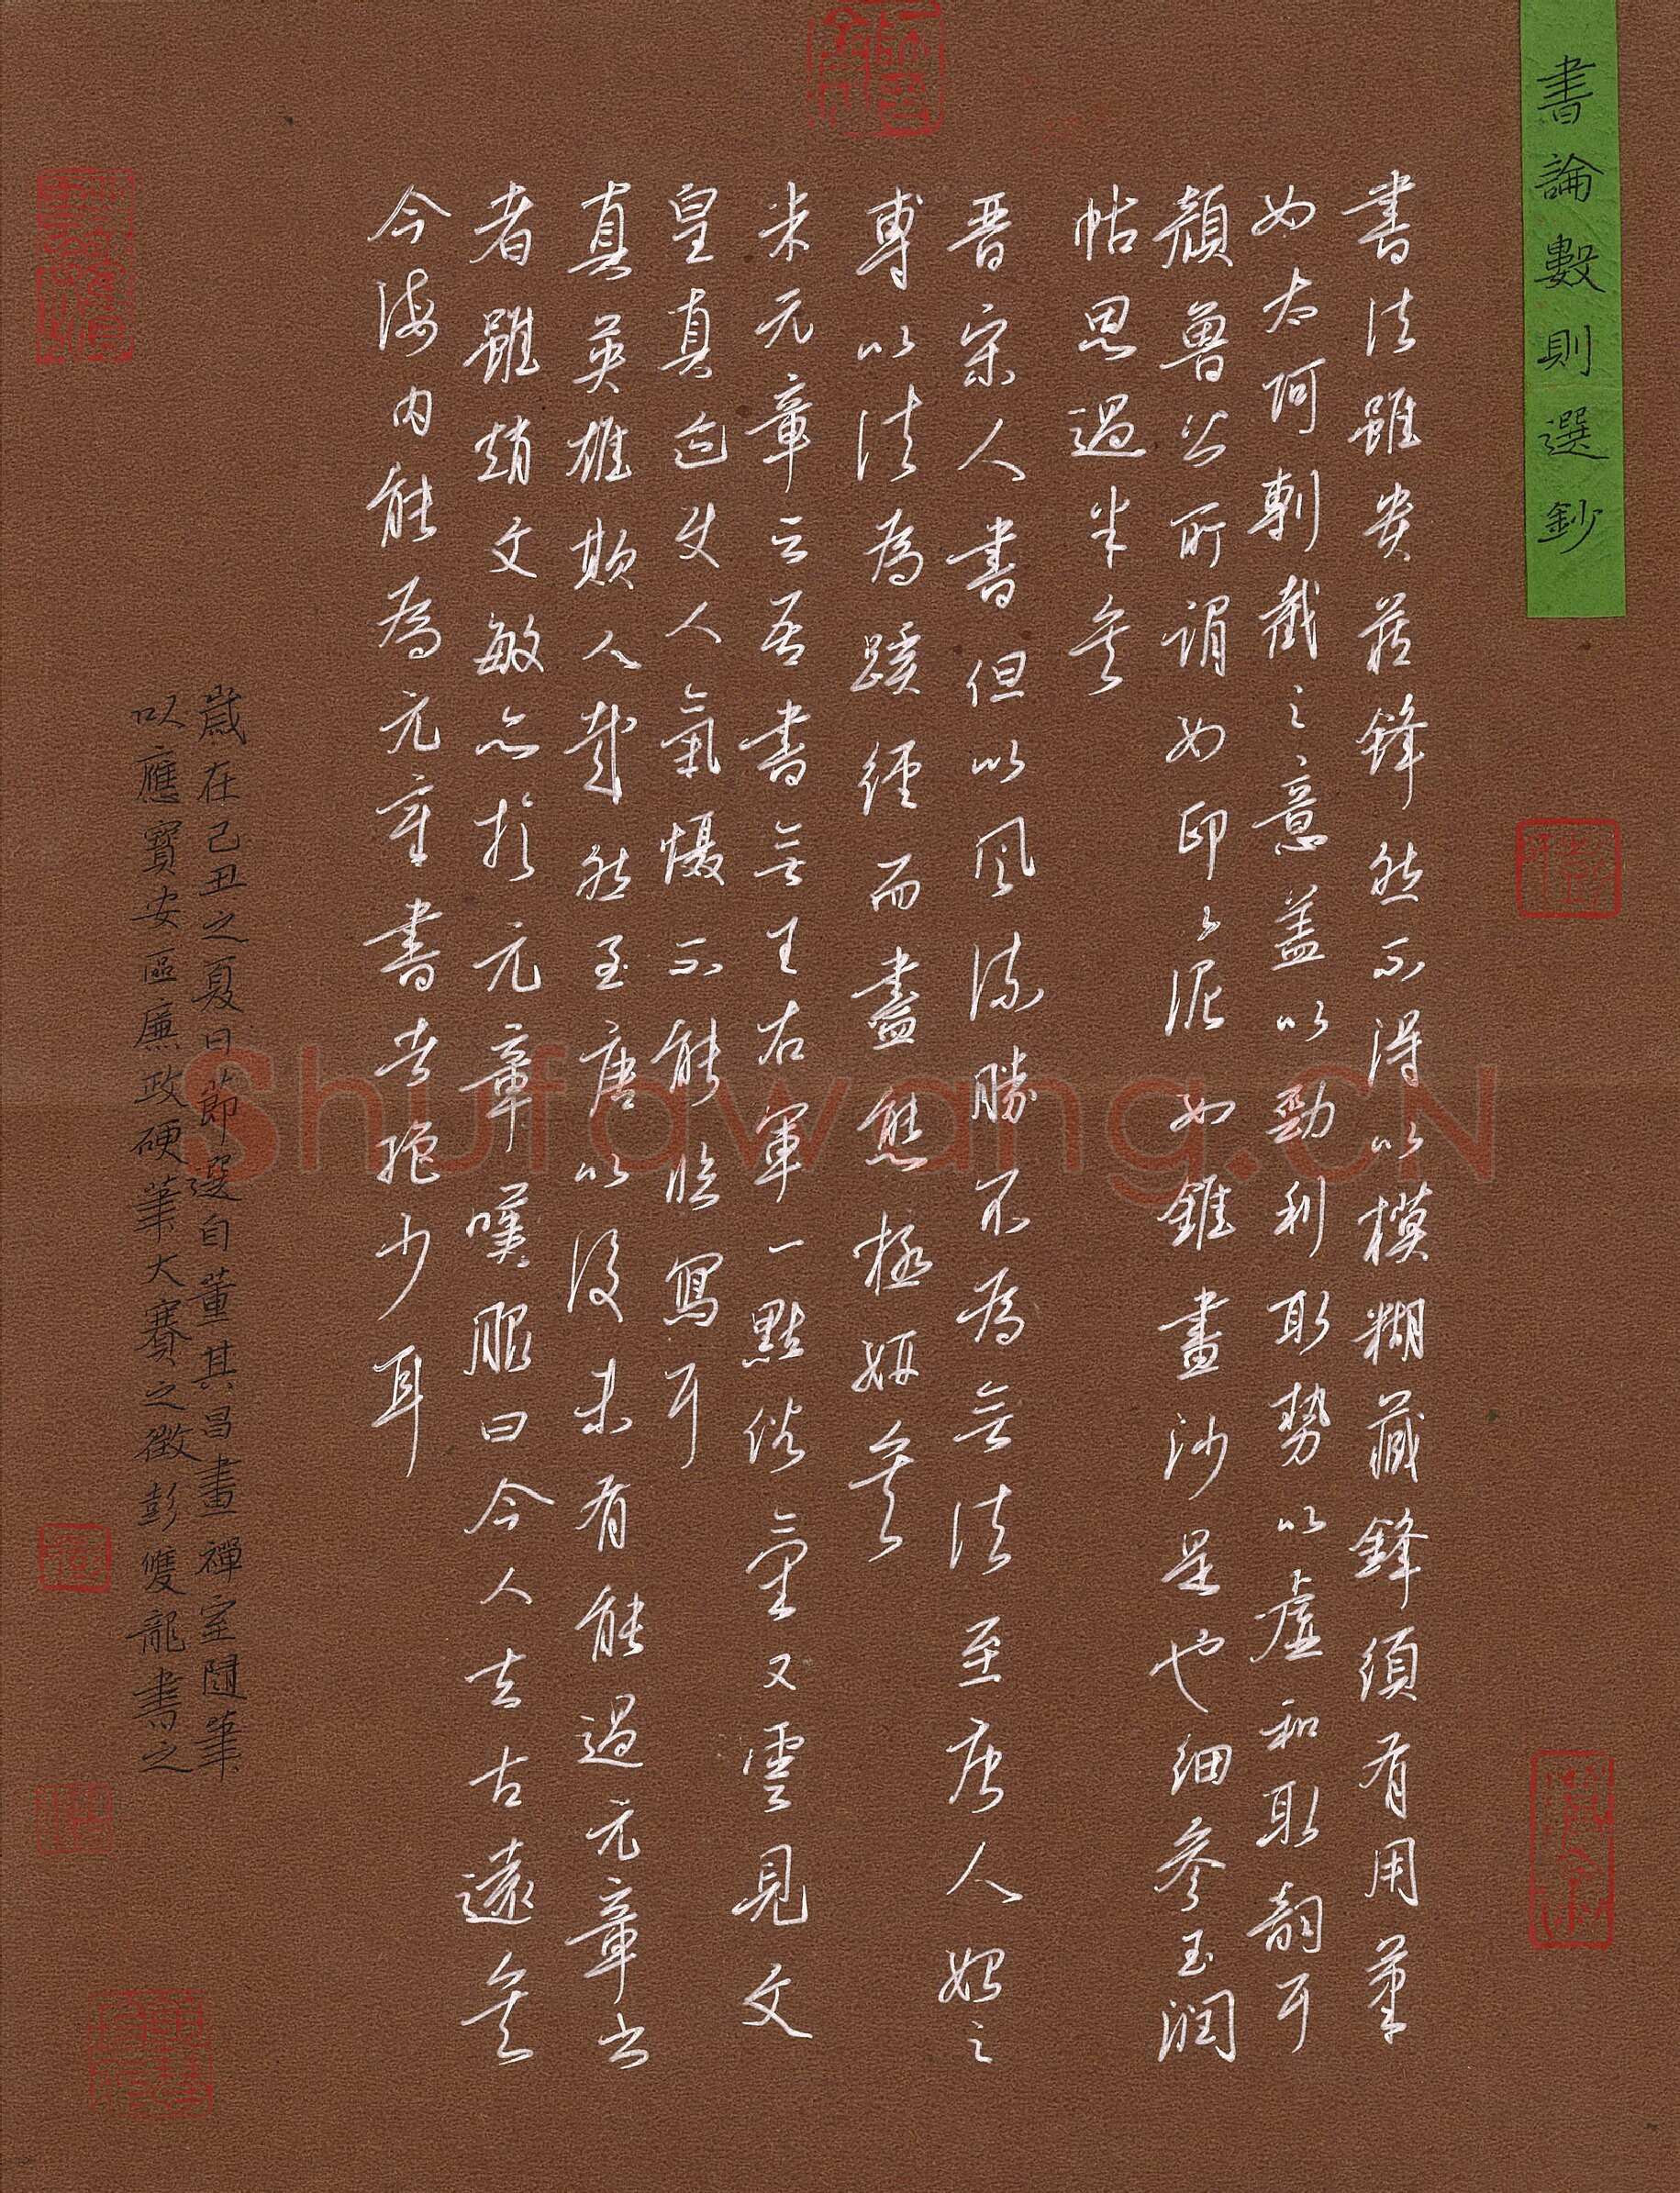 書論數則選鈔
書法雖貴藏鋒然不得以模糊藏鋒須有用筆
如太阿剸截之意蓋以勁利取勢以虛和取韻耳
顏魯公所謂如印印泥如錐畫沙是也細參玉潤
帖思過半矣
晋宋人書但以風流勝不為無法至唐人始之
專以法為蹊徑而盡態極妍矣
米元章云吾書無王右軍一點俗氣又雲見文
皇真迹使人氣懾不能臨寫耳
真英雄欺人哉然至唐以後未有能過元章書
者雖趙文敏亦於元章嘆服曰今人去古遠矣
今海内能為元章書者絶少耳
歲在己丑之夏日節選自董其昌畫禪室隨筆
以應寶安區廉政硬筆大賽之徵彭雙龍書之
Shufawang.CN